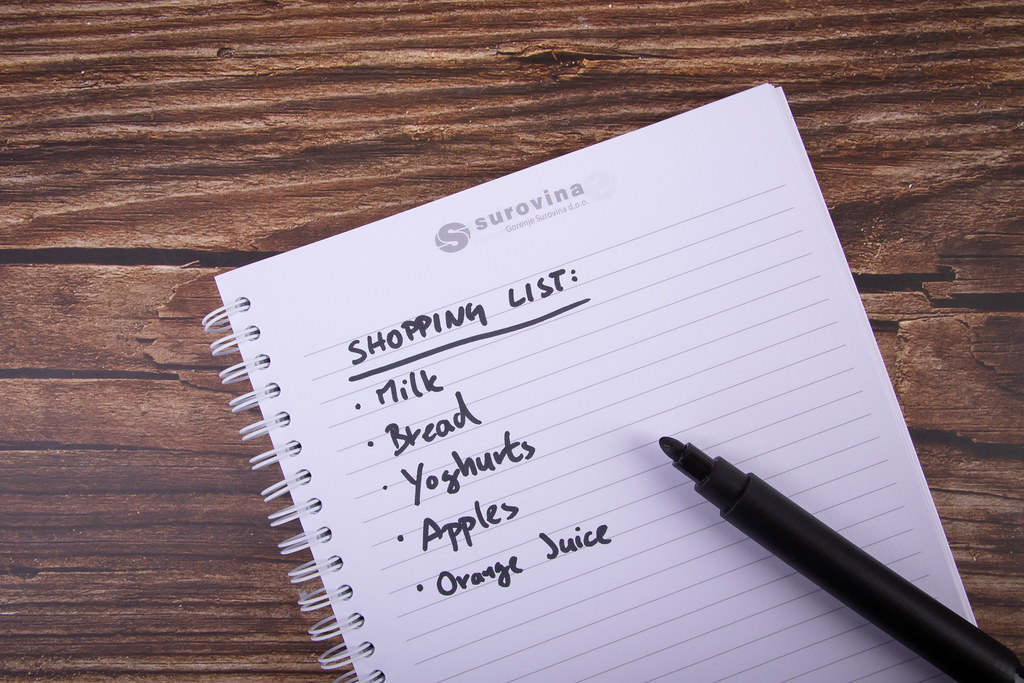 surovina
Gorenje Surovina d.o.o.
SHOPPING LIST:
• Milk
• Bread
• Yoghurts
• Apples
• Orange Juice